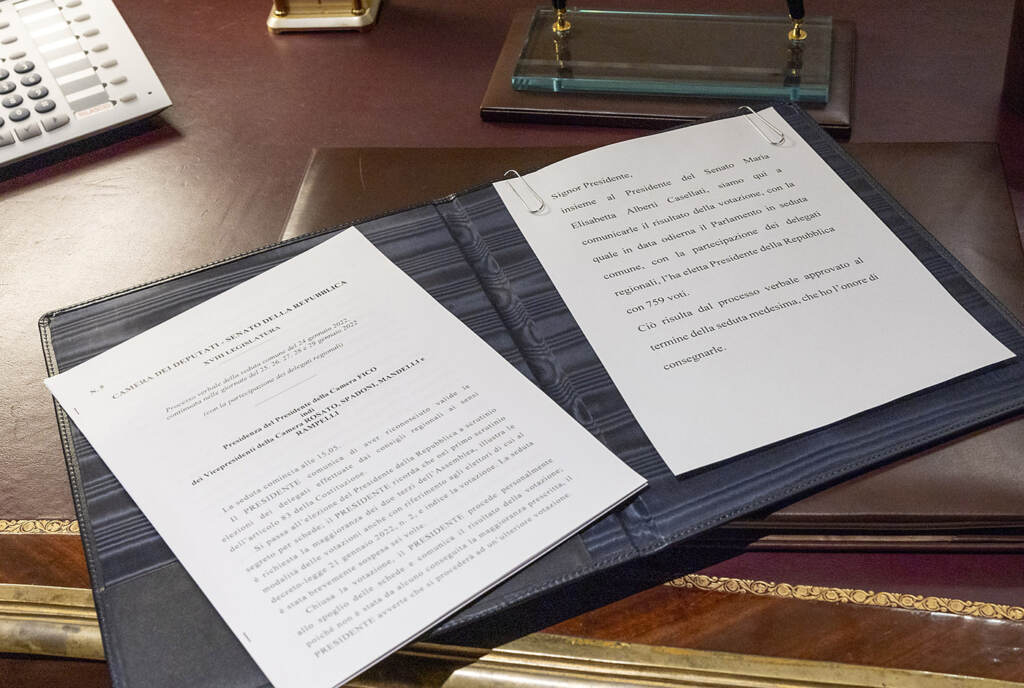 N. 8
CAMERA DEI DEPUTATI - SENATO DELLA REPUBBLICA
XVIII LEGISLATURA
Processo verbale della seduta comune del 24 gennaio 2022,
continuata nelle giornate del 25, 26, 27, 28 e 29 gennaio 2022
(con la partecipazione dei delegati regionali)
Presidenza del Presidente della Camera FICO
indi
dei Vicepresidenti della Camera ROSATO, SPADONI, MANDELLI e
RAMPELLI
La seduta comincia alle 15,05.
Il PRESIDENTE comunica di aver riconosciuto valide le
elezioni dei delegati effettuate dai consigli regionali ai sensi
dell'articolo 83 della Costituzione.
Si passa all'elezione del Presidente della Repubblica a scrutinio
segreto per schede; il PRESIDENTE ricorda che nel primo scrutinio
è richiesta la maggioranza dei due terzi dell'Assemblea, illustra le
modalità delle votazioni anche con riferimento agli elettori di cui al
decreto-legge 21 gennaio 2022, n. 2, e indìce la votazione. La seduta
è stata brevemente sospesa sei volte.
Chiusa la votazione, il PRESIDENTE procede personalmente
allo spoglio delle schede e comunica il risultato della votazione;
poiché non è stata da alcuno conseguita la maggioranza prescritta, il
PRESIDENTE avverte che si procederà ad un'ulteriore votazione.
Signor Presidente,
insieme al Presidente del Senato Maria
Elisabetta Alberti Casellati, siamo qui a
comunicarle il risultato della votazione, con la
quale in data odierna il Parlamento in seduta
comune, con la partecipazione dei delegati
regionali, l'ha eletta Presidente della Repubblica
con 759 voti.
Ciò risulta dal processo verbale approvato al
termine della seduta medesima, che ho l'onore di
consegnarle.